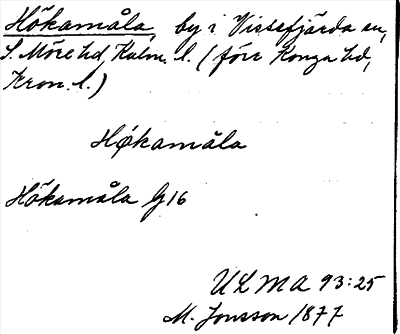 Hökamåla, by i Vissefjärda sn,
S. Möre hd, Kalm. l. (förr Konga hd,
Kron. l.)
Høkamåla
Hökamåla G16
ULMA 93:25
M. Jonsson 1877